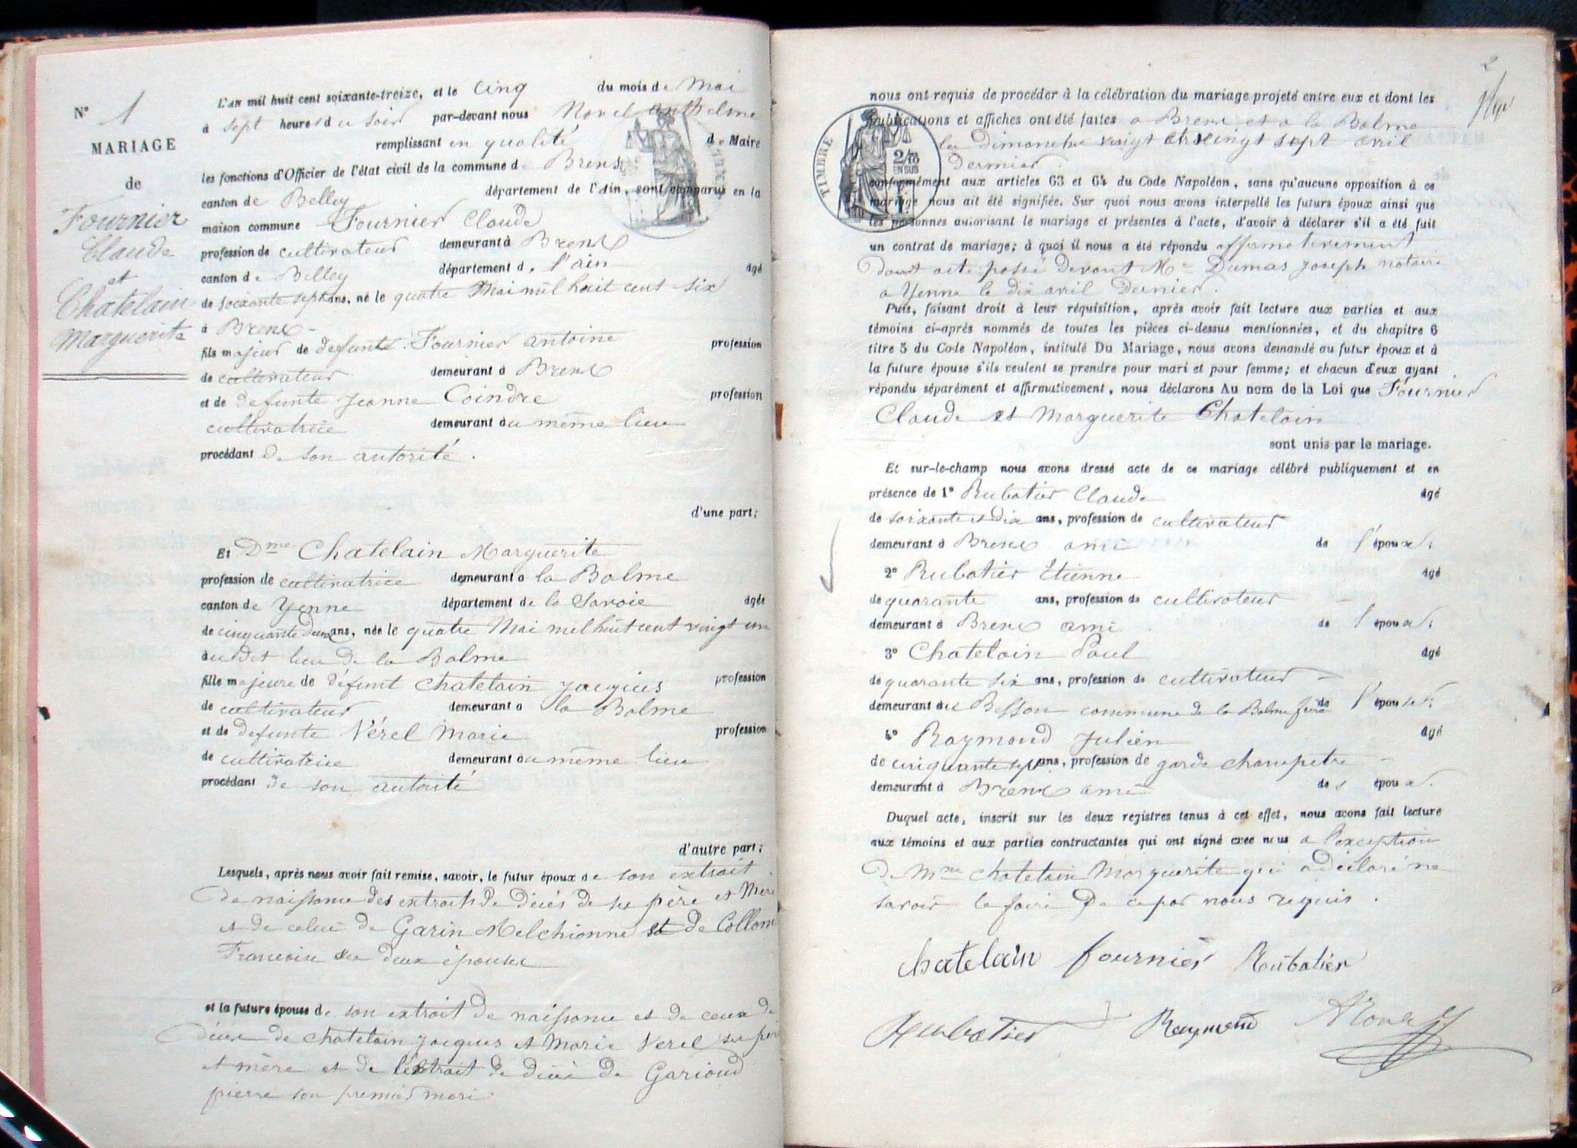 N° 1
MARIAGE
de
Fournier
Claude
et
Chatelain
Marguerite
L'an mil huit cent soixante-treize, et le Cinq du mois de Mai
à sept heures du soir par-devant nous Novel Anthelme
remplissant en qualité de Maire
les fonctions d'Officier de l'état civil de la commune de Brens
canton de Belley département de l'Ain, sont comparus en la
maison commune Fournier Claude
profession de cultivateur demeurant à Brens
canton de Belley département de l'ain âgé
de soixante sept ans, né le quatre Mai mil huit cent six
à Brens
fils majeur de defunt Fournier antoine profession
de cultivateur demeurant à Brens
et de defunte Jeanne Coindre profession
cultivatrice demeurant au même lieu
procédant de son autorité.
d'une part;
Et Dme Chatelain Marguerite
profession de cultivatrice demeurant à la Balme
canton de Yenne département de la Savoie âgée
de cinquante deux ans, née le quatre Mai mil huit cent vingt un
au dit lieu de la Balme
fille majeure de défunt Chatelain Jacques profession
de cultivateur demeurant à la Balme
et de defunte Vérel Marie profession
de cultivatrice demeurant au même lieu
procédant de son autorité
d'autre part;
Lesquels, après nous avoir fait remise, savoir, le futur époux de son extrait
de naissance des extraits de décès de ses père et Mère
et de celui de Garin Melchionne et de Collom
Francoise ses deux épouses
et la future épouse de son extrait de naissance et de ceux de
décès de Chatelain Jacques et Marie Verel ses père
et mère et de l'extrait de décès de Garioud
pierre son premier mari.
2
nous ont requis de procéder à la célébration du mariage projeté entre eux et dont les
publications et affiches ont été faites à Brens et a la Balme
les dimanches vingt et vingt sept avril
dernier.
TIMBRE
EN SUS
conformément aux articles 63 et 64 du Code Napoléon, sans qu'aucune opposition à ce
mariage nous ait été signifiée. Sur quoi nous avons interpellé les futurs époux ainsi que
les personnes autorisant le mariage et présentes à l'acte, d'avoir à déclarer s'il a été fait
un contrat de mariage; à quoi il nous a été répondu affirmativement
dont acte passé devant Me Dumas Joseph notaire
a Yenne le dix avril dernier.
Puis, faisant droit à leur réquisition, après avoir fait lecture aux parties et aux
témoins ci-après nommés de toutes les pièces ci-dessus mentionnées, et du chapitre 6
titre 5 du Code Napoléon, intitulé Du Mariage, nous avons demandé au futur époux et à
la future épouse s'ils veulent se prendre pour mari et pour femme; et chacun d'eux ayant
répondu séparément et affirmativement, nous déclarons Au nom de la Loi que Fournier
Claude et Marguerite Chatelain
sont unis par le mariage.
Et sur-le-champ nous avons dressé acte de ce mariage célébré publiquement et en
présence de 1° Rubatier Claude âgé
de soixante et dix ans, profession de cultivateur
demeurant à Brens ami de l'époux.
2° Rubatier Etienne âgé
de quarante ans, profession de cultivateur
demeurant à Brens ami de l'époux.
3° Chatelain Paul âgé
de quarante six ans, profession de cultivateur
demeurant au Besson commune de la Balme frère de l'épouse.
4° Raymond Julien âgé
de cinquante sept ans, profession de garde champetre
demeurant à Brens ami des époux.
Duquel acte, inscrit sur les deux registres tenus à cet effet, nous avons fait lecture
aux témoins et aux parties contractantes qui ont signé avec nous a l'exception
de Mme Chatelain Marguerite qui a déclaré ne
savoir le faire De ce par nous requis.
chatelain fournier Rubatier
Rubatier Raymond ANovel